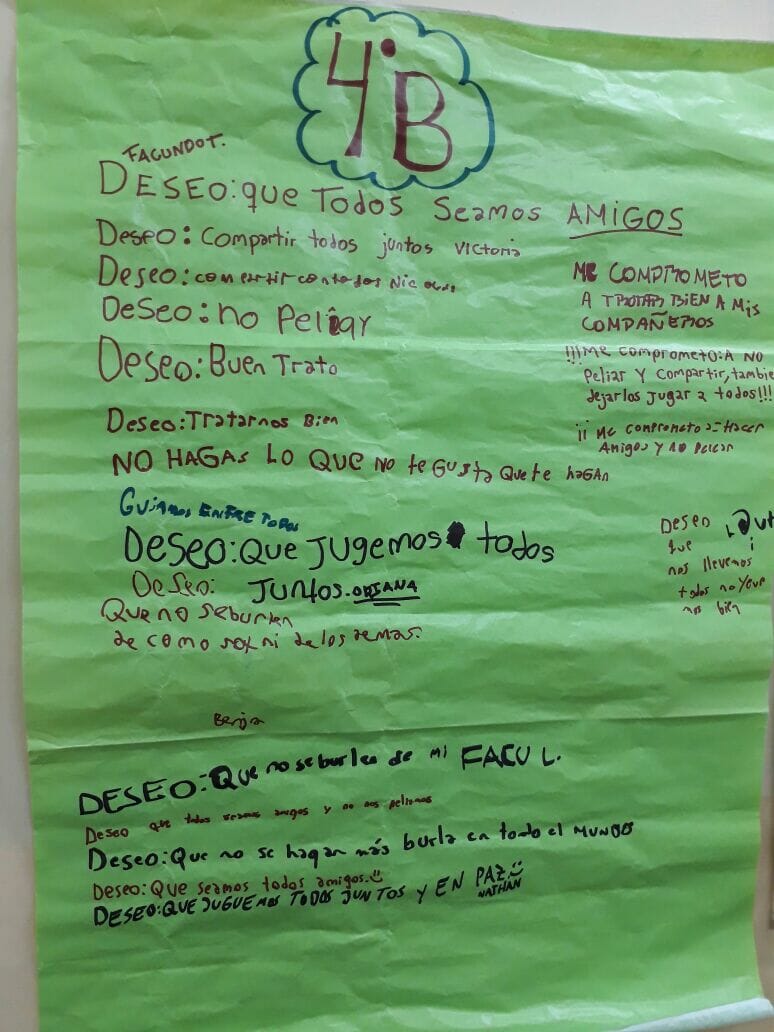 4°B
FACUNDO T.
DESEO: que Todos Seamos AMIGOS
Deseo: Compartir todos juntos Victoria
Deseo: compartir con todos
DeSeo: no Peliar
Deseo: Buen Trato
Deseo: Tratarnos Bien
NO HAGAS LO QUE NO te GUSTA QUE te hAGAN
GUIARNOS ENTRE TODOS
Deseo: QUe JUGEMOS todos
JUNtoS. ORIANA
Deseo:
QUe no se burlen
de como soy ni de los demas.
Me COMPROMETO
A TRATAR BIEN A Mis
COMPAÑEROS
!!!Me comprometo: A NO
Peliar Y Compartir, tambie
dejarlos jugar a todos!!!
¡¡ Me comprometo a: Hacer
Amigos y no pelear
Deseo
que
nos llevemos
todos
nos bien
Benja
DESEO: QUe no se burlen de mi FACU L.
Deseo que todos seamos amigos y no nos peliemos
Deseo: Que no se hagan más burla en todo el MUNDO
Deseo: Que seamos todos amigos.
DESEO: QUE JUGUEMOS TODOS JUNTOS Y EN PAZ
NATHAN